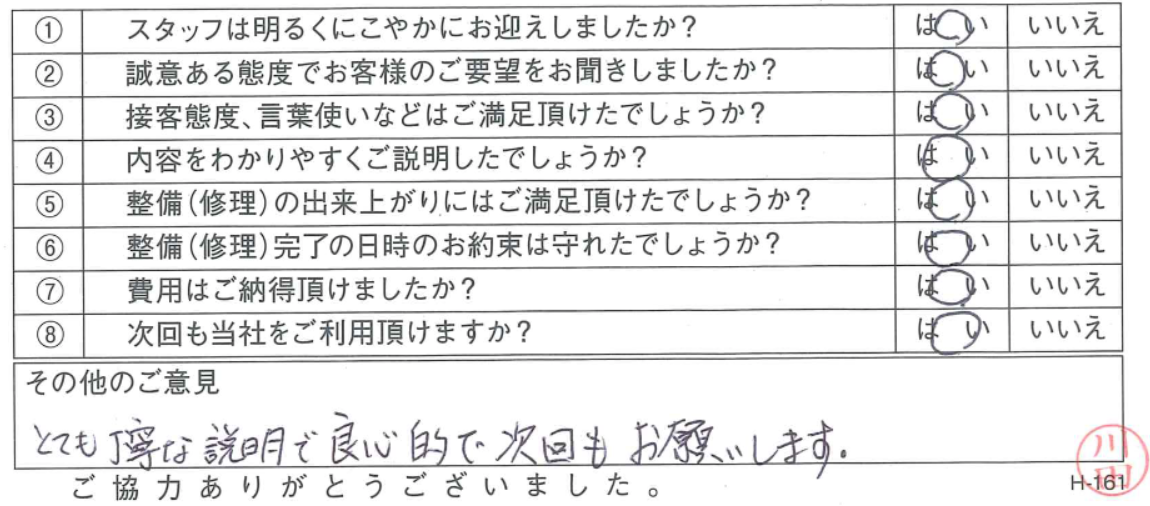 ① スタッフは明るくにこやかにお迎えしましたか? はい いいえ
② 誠意ある態度でお客様のご要望をお聞きしましたか? はい いいえ
③ 接客態度、言葉使いなどはご満足頂けたでしょうか? はい いいえ
④ 内容をわかりやすくご説明したでしょうか? はい いいえ
⑤ 整備(修理)の出来上がりにはご満足頂けたでしょうか? はい いいえ
⑥ 整備(修理)完了の日時のお約束は守れたでしょうか? はい いいえ
⑦ 費用はご納得頂けましたか? はい いいえ
⑧ 次回も当社をご利用頂けますか? はい いいえ
その他のご意見
とても丁寧な説明で良心的で次回もお願いします.
ご協力ありがとうございました。
川田
H-161